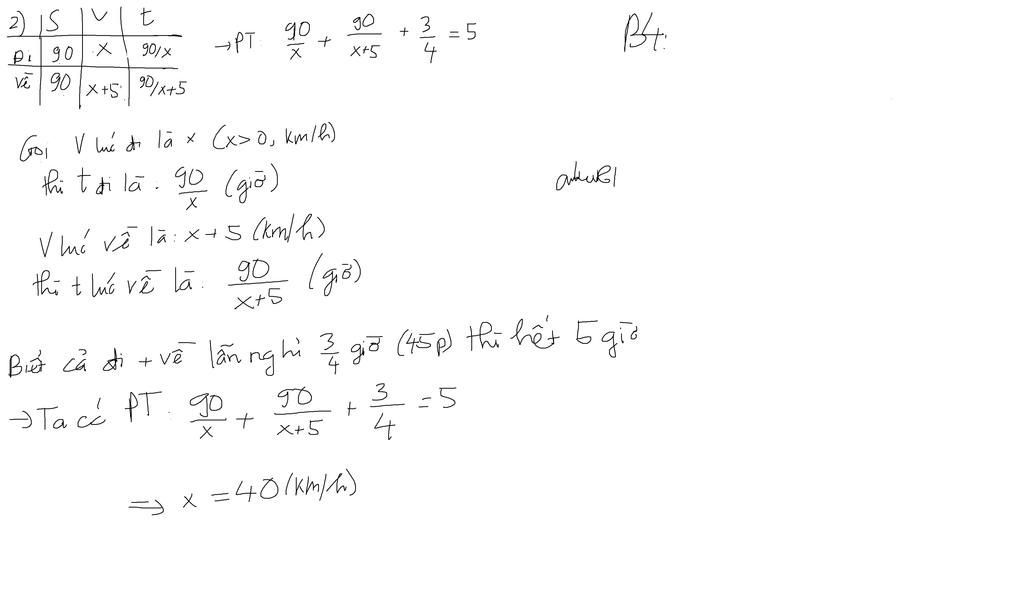 2) | S | V | t
Đi | 90 | x | 90/x
về | 90 | x+5 | 90/x+5
→ PT: 90/x + 90/x+5 + 3/4 = 5
Gọi V lúc đi là x (x>0, km/h)
thì t đi là: 90/x (giờ)
V lúc về là: x+5 (km/h)
thì t lúc về là: 90/x+5 (giờ)
Biết cả đi + về lẫn nghỉ 3/4 giờ (45p) thì hết 5 giờ
→ Ta có PT: 90/x + 90/x+5 + 3/4 = 5
⇒ x = 40 (km/h)